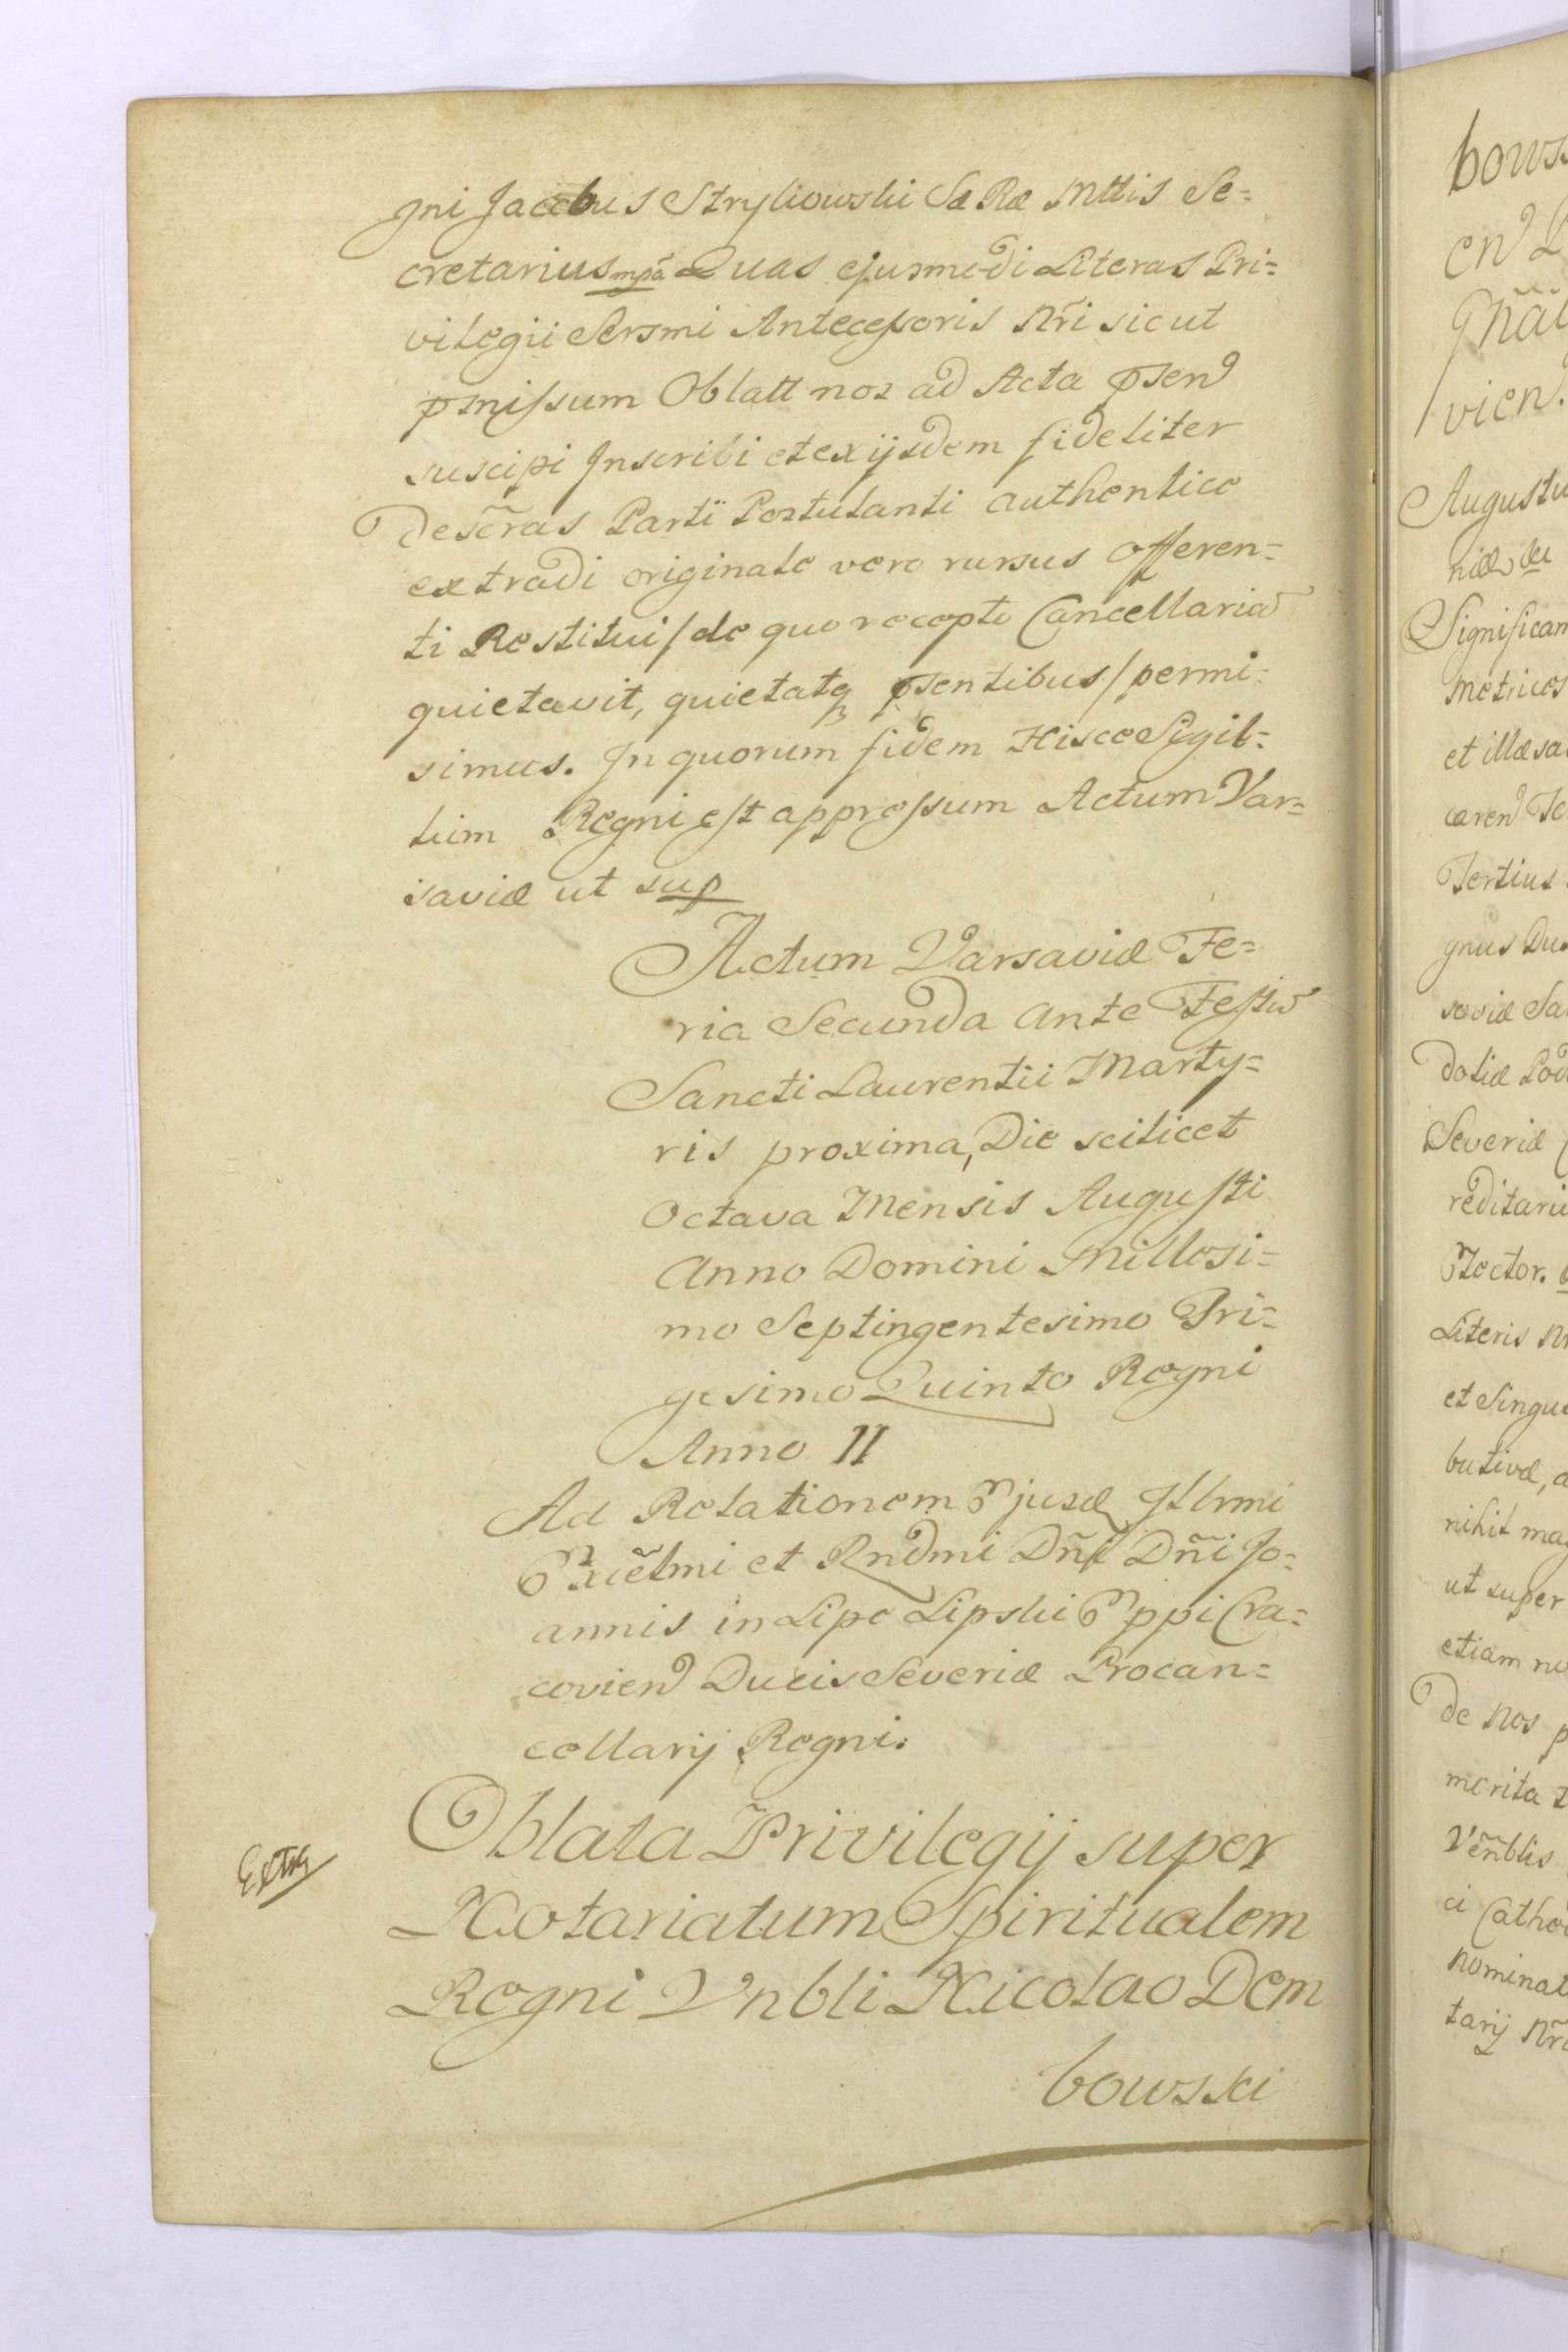 gni Jacobus Strykowski Sæ Ræ Mttis Se=
cretarius mpã Quas ejusmodi Literas Pri=
vilegii Sersmi Antecessoris Nr̃i sicut
pmissum Oblatt nos ad Acta psen
suscipi Inscribi et ex ijsdem fideliter
Descr̃as Parti Postulanti authentice
extradi originale vero rursus offeren=
ti Restitui/de quo recepto Cancellaria
quietavit, quietatq psentibus/permi=
simus. In quorum fidem Hisce Sigil=
lum Regni est appressum Actum Var=
saviæ ut sup
Actum Varsaviæ Fe=
ria Secunda ante Festu
Sancti Laurentii Marty=
ris proxima, Die scilicet
Octava Mensis Augusti
Anno Domini Millesi=
mo Septingentesimo Tri=
gesimo Quinto Regni
Anno II
Ad Relationem Ejusd Illrmi
Excełmi et Rndmi Dñi Dñi Jo=
annis in Lipe Lipski Eppi Cra=
covien Ducis Severiæ Procan=
cellarij Regni.
Oblata Privilegij super
Notariatum Spiritualem
Regni Vnbli Nicolao Dem
bowski
bows
en
Gnãl
vien.
Augustu
niæ,
Significam
metrices
et illæsa
caren Te
Tertius
gnus Dux
soviæ Sa
doliæ Pod
Severiæ
reditariu
Elector.
Literis Nr
et Singul
butivæ, a
nihil ma
ut super
etiam no
De nos p
merita
Vẽnblis
ci Catho
nominat
tarij Nr̃i